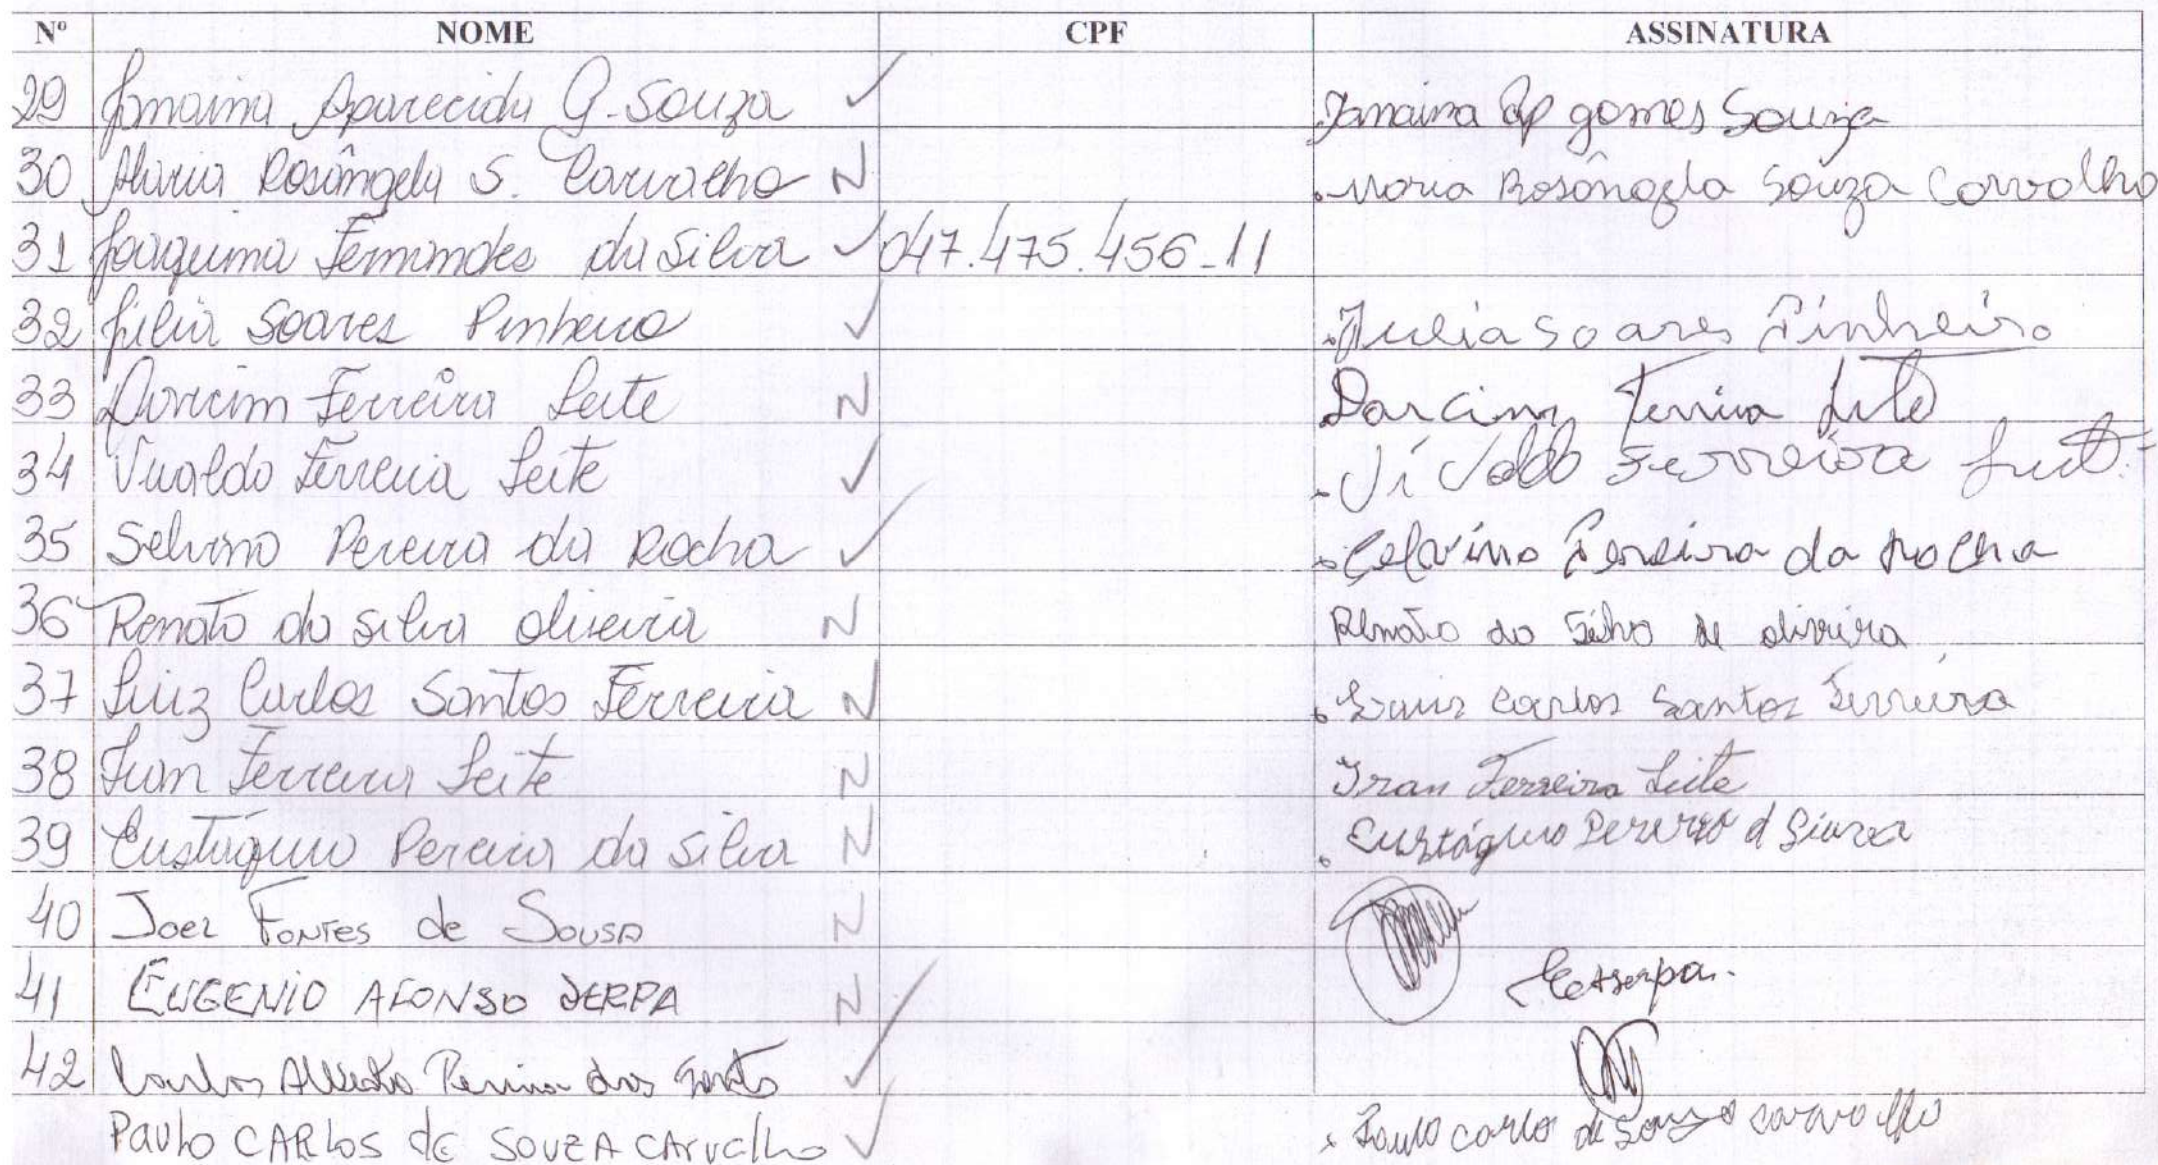 Nº NOME CPF ASSINATURA
29 Janaina Aparecida G. Souza ✓ Janaina Ap gomes Souza
30 Maria Rosângela S. Carvalho N Maria Rosângela Souza Carvalho
31 Joaquina Fernandes da Silva ✓ 047.475.456-11
32 Júlia Soares Pinheiro ✓ Julia Soares Pinheiro
33 Darcim Ferreira Leite N Darcim Ferreira Leite
34 Vivaldo Ferreira Leite ✓ Vivaldo Ferreira Leite
35 Selvino Pereira da Rocha ✓ Celvino Pereira da Rocha
36 Renato da Silva Oliveira N Renato da Silva de oliveira
37 Luiz Carlos Santos Ferreira N Luis Carlos Santos Ferreira
38 Iran Ferreira Leite N Iran Ferreira Leite
39 Eustáquio Pereira da Silva N Eustáquio Pereira d
40 Joel Fontes de Sousa N
41 EUGENIO AFONSO SERPA N
42 Carlos Alberto Pereira dos Santos ✓
Paulo CARLOS de SOUZA CARVALHO ✓ Paulo carlos de Souza carvalho